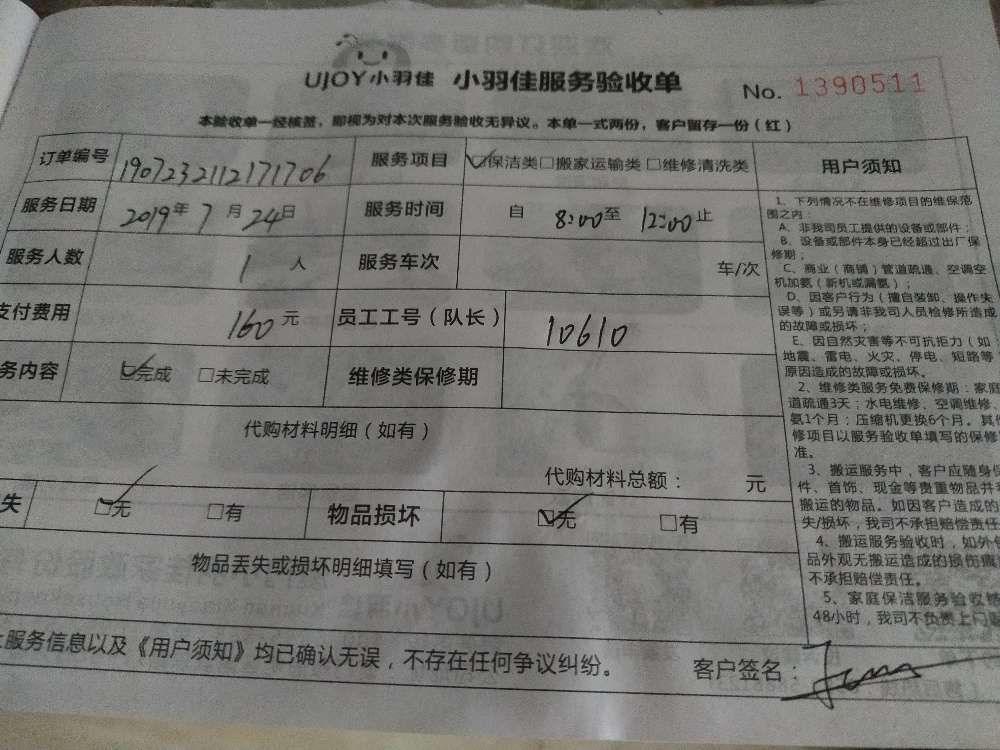 UJOY小羽佳 小羽佳服务验收单 No. 1390511
本验收单一经核签，即视为对本次服务验收无异议。本单一式两份，客户留存一份（红）
订单编号 1907232112171706 服务项目 ☑保洁类□搬家运输类□维修清洗类 用户须知
服务日期 2019年7月24日 服务时间 自 8:00至 12:00止
服务人数 1 人 服务车次 车/次
支付费用 160元 员工工号（队长） 10610
务内容 ☑完成 □未完成 维修类保修期
代购材料明细（如有）
代购材料总额： 元
失 ☑无 □有 物品损坏 ☑无 □有
物品丢失或损坏明细填写（如有）
服务信息以及《用户须知》均已确认无误，不存在任何争议纠纷。
客户签名：
1、下列情况不在维修项目的维保范
围之内：
A、非我司员工提供的设备或部件；
B、设备或部件本身已经超过出厂保
修期；
C、商业（商铺）管道疏通、空调空
机加氨（新机或漏氨）；
D、因客户行为（擅自装卸、操作失
误等）或另请非我司人员检修所造成
的故障或损坏；
E、因自然灾害等不可抗拒力（如：
地震、雷电、火灾、停电、短路等
原因造成的故障或损坏。
2、维修类服务免费保修期：家庭
道疏通3天；水电维修、空调维修、
氨1个月；压缩机更换6个月。其
修项目以服务验收单填写的保修
准。
3、搬运服务中，客户应随身
件、首饰、现金等贵重物品并
搬运的物品。如因客户造成的
失/损坏，我司不承担赔偿责任
4、搬运服务验收时，如外
品外观无搬运造成的损伤
不承担赔偿责任。
5、家庭保洁服务验收
48小时，我司不负责上门